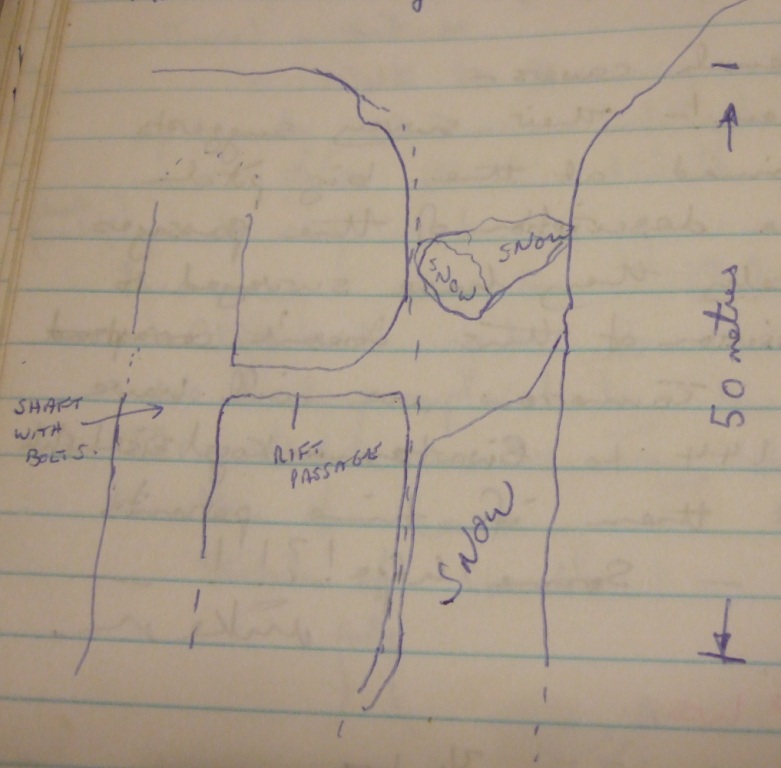 SNOW
SNOW
50 metres
SHAFT
WITH
BOLTS.
RIFT
PASSAGE
SNOW